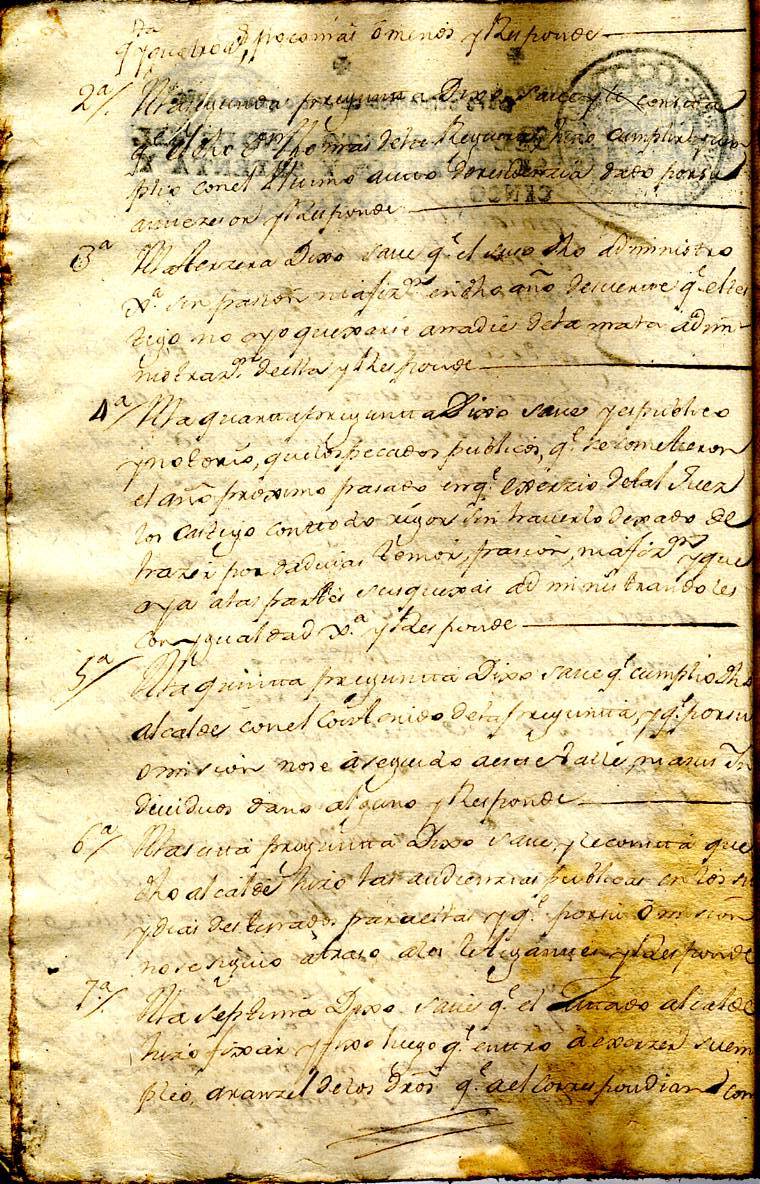 q.ta y quatro a.s poco mas o menos y Responde
2a/. A la segunda pregunta Dixo save y le consta
q.e el dho
plio con el Ultimo auto de residencia dado por su
antecesor y Responde
3a A la terzera Dixo save q.e el suso dho administro
X.a sin pasion ni afiz.on en dho año de suerte q.e el tes
tigo no oyo quexarse a nadie de la mala admi
nistraz.on de ella y Responde
4a/ A la quarta pregunta Dixo save y es publico
y notorio, que los pecados publicos, q.e se cometieron
el año proximo pasado en q.e exerzio de tal Juez
los castigo con todo rigor sin haverlo dexado de
hazer por dadivas temor, pasion, ni afiz.on y que
oya a las partes sus quexas administrandoles
con ygualdad X.a y Responde
5a/ A la quinta pregunta Dixo save q.e cumplio dho
alcalde con el contenido de la pregunta, y q.e por su
omision no se a seguido a este Valle, ni a sus In
dividuos daño alguno y Responde
6a/ A la sesta pregunta Dixo save, y le consta que
dho alcalde hizo las audienzias publicas en los
y dias destinados para ellas y q.e por su omision
no se siguio atraso a los litigantes y Responde
7a/. A la septima Dixo save q.e el Zitado alcalde
hizo fixar y fixo luego q.e entro a exerzer su em
pleo, aranzel de los dros q.e a el correspondian con